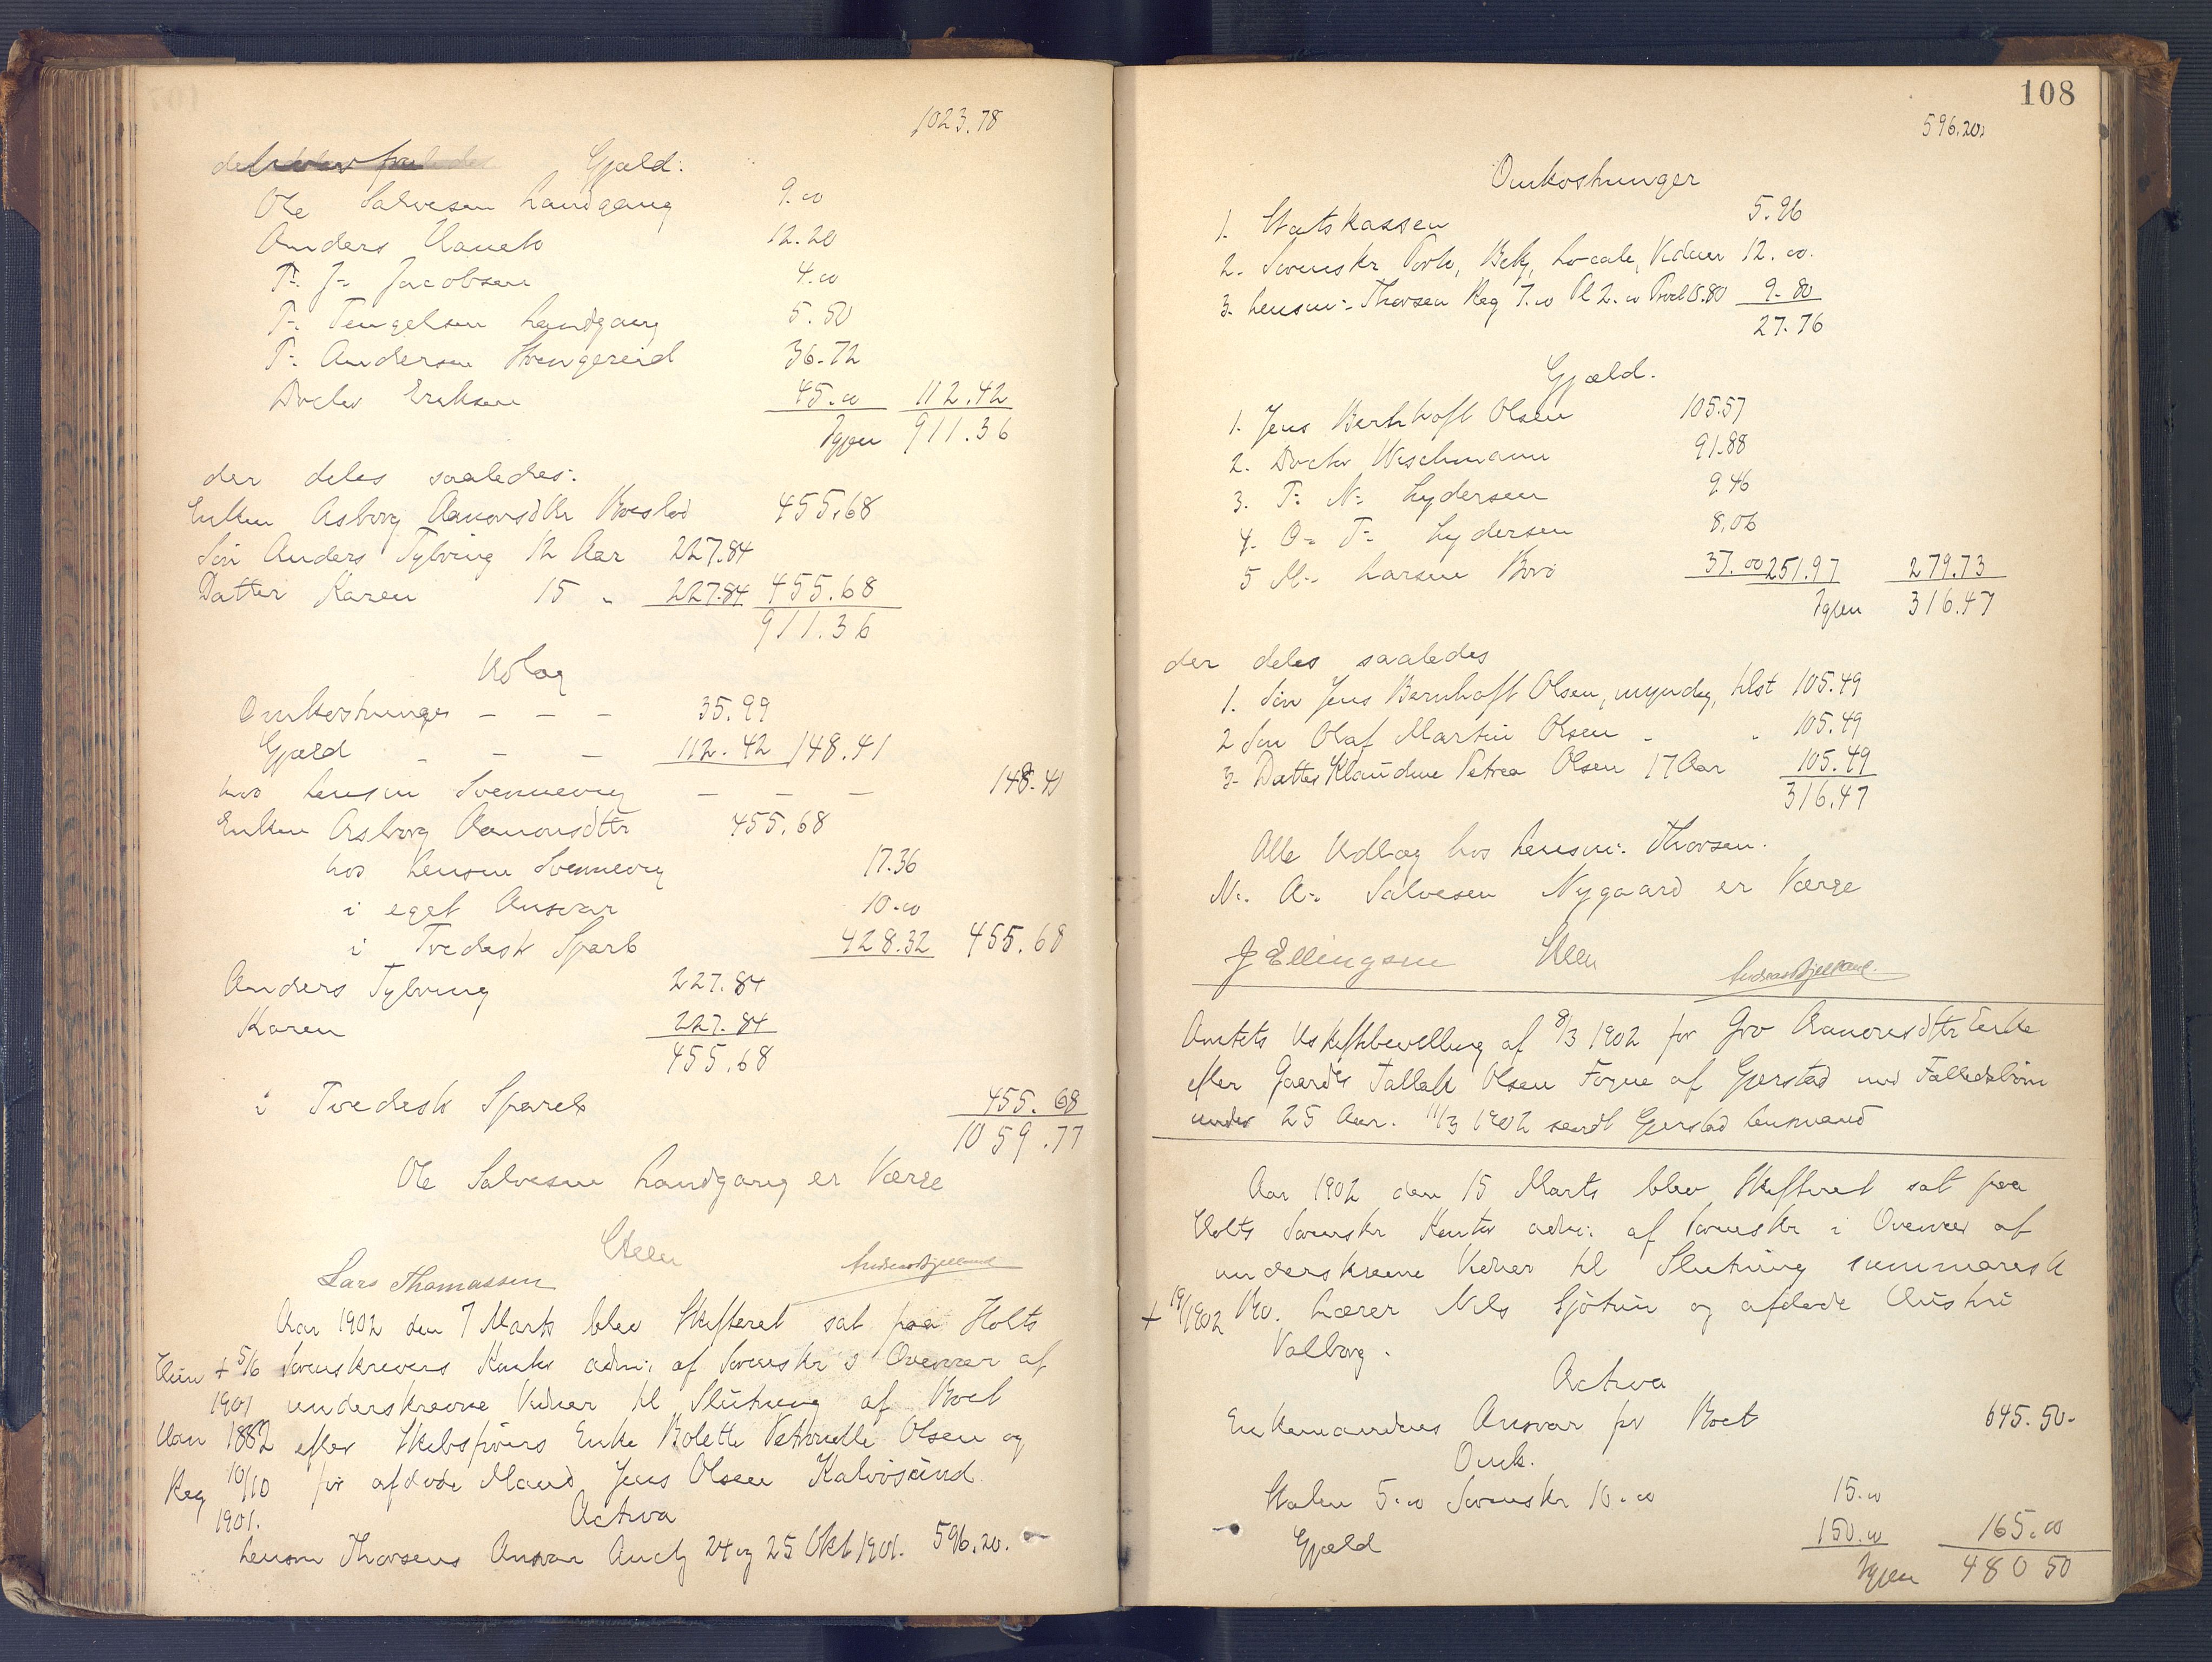 1023.78
Gjæld:
Ole Salvesen Landgang 9.00
Anders Haueto 12.20
T. J. Jacobsen 4.00
T. Tengelsen Landgang 5.50
T. Andersen Strengereid 36.72
Doctor Eriksen 45.00 112.42
Igjen 911.36
der deles saaledes:
Enken Asborg Aanonsdtr Boeslod 455.68
Søn Anders Tylving 12 Aar 227.84
Datter Karen 15 " 227.84 455.68
911.36
Udlæg
Omkostninger - - - 35.99
Gjæld - - - 112.42 148.41
hos Lensm Svennevig - - - 148.41
Enken Asborg Aanonsdtr 455.68
hos Lensm Svennevig 17.36
i eget Ansvar 10.00
i Tvedestr Sparb 428.32 455.68
Anders Tylving 227.84
Karen 227.84
455.68
i Tvedestr Spareb 455.68
1059.77
Ole Salvesen Landgang er Værge
Lars Thomassen
Aar 1902 den 7 Marts blev Skifteret sat paa Holts
Hun + 5/6 Sorenskrivers Kontor adm: af Sorenskr i Overvær af
1901 underskrevne Vidner til Slutning af Boet
Han 1882 efter Skibsførers Enke Bolette Petronelle Olsen og
Reg 10/10 før afdøde Mand Jens Olsen Kalvøsund
1901. Activa
Lensm Thorsens Ansvar Auct 24 og 25 Okt 1901. 596.20.
108
596.20
Omkostninger
1. Statskassen 5.96
2. Sorenskr Porto, Bekj, Locale, Vidner 12.00.
3. Lensm: Thorsen Reg 7.00 Pl 2.00 Prot 0.80 9.80
27.76
Gjæld.
1. Jens Bernhoft Olsen 105.57
2. Doctor Weschmann 91.88
3. T: N: Lydersen 9.46
4. O: T: Lydersen 8.06
5 M: Larsen Borø 37.00 251.97 279.73
Igjen 316.47
der deles saaledes
1. Søn Jens Bernhoft Olsen, myndig, tilst 105.49
2 Søn Olaf Martin Olsen - " 105.49
3- Datter Klaudine Petrea Olsen 17 Aar 105.49
316.47
Alle Udlæg hos Lensm: Thorsen.
N: A: Salvesen Nygaard er Værge
J Ellingsen
Amtets Uskiftebevilling af 8/3 1902 for Gro Aanonsdtr Enke
efter Gaardr Tallak Olsen Fogne af Gjerstad med Fællesbørn
under 25 Aar. 11/3 1902 sendt Gjerstad Lensmand
Aar 1902 den 15 Marts blev Skifteret sat paa
Holts Sorenskr Kontor adm: af Sorenskr i Overvær af
underskrevne Vidner til Slutning summarisk
+ /1902 Bo. Lærer Nils Gjøtun og afdøde Hustru
Valborg.
Activa
Enkemandens Ansvar for Boet 645.50-
Omk.
Staten 5.00 Sorenskr 10.00 15.00
Gjæld 150.00 165.00
Igjen 480 50